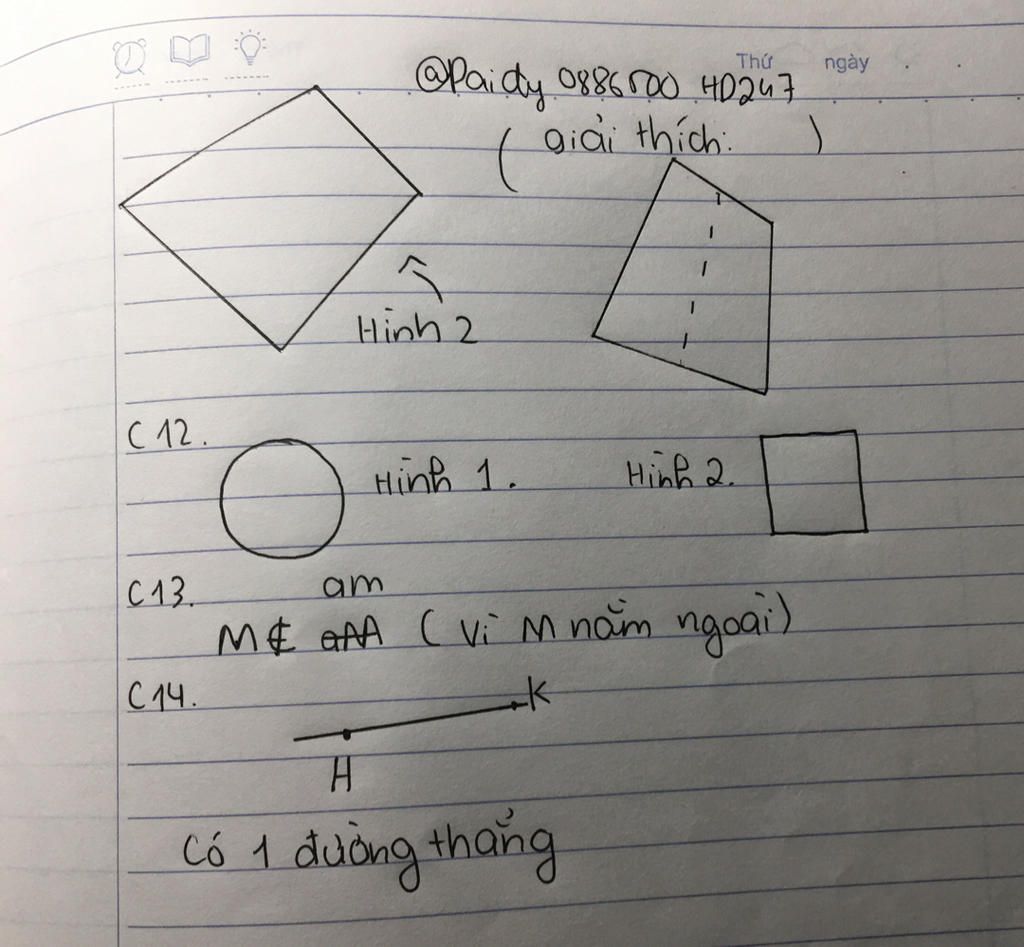 Thứ ngày
@Paidy 0886500 HD247
( giải thích: )
Hình 2
C12.
Hình 1. Hình 2.
C13. am
M ∉ (vì M nằm ngoài)
C14.
K
H
Có 1 đường thẳng